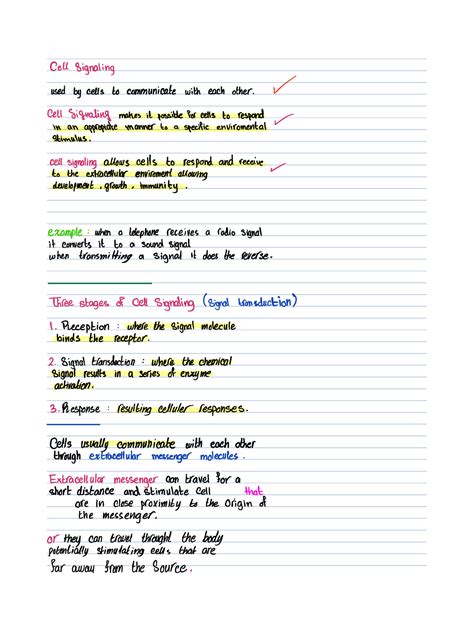 Cell Signaling
used by cells to communicate with each other.
Cell Signaling makes it possible for cells to respond
in an appropiate manner to a specific enviromental
Stimulus.
cell signaling allows cells to respond and receive
to the extracellular enviroment allowing
development, growth, immunity.
example : when a telephone receives a radio signal
it converts it to a sound signal
when transmitting a signal it does the reverse.
Three stages of Cell Signaling (Signal transduction)
1. Reception : where the signal molecule
binds the receptor.
2. Signal transduction : where the chemical
Signal results in a series of enzyme
activation.
3. Response : resulting celluler responses.
Cells usually communicate with each other
through extracellular messenger molecules.
Extracellular messenger can travel for a
short distance and stimulate cell that
are in close proximity to the Origin of
the messenger.
or they can travel throught the body
potentially stimulating cells that are
far away from the Source.